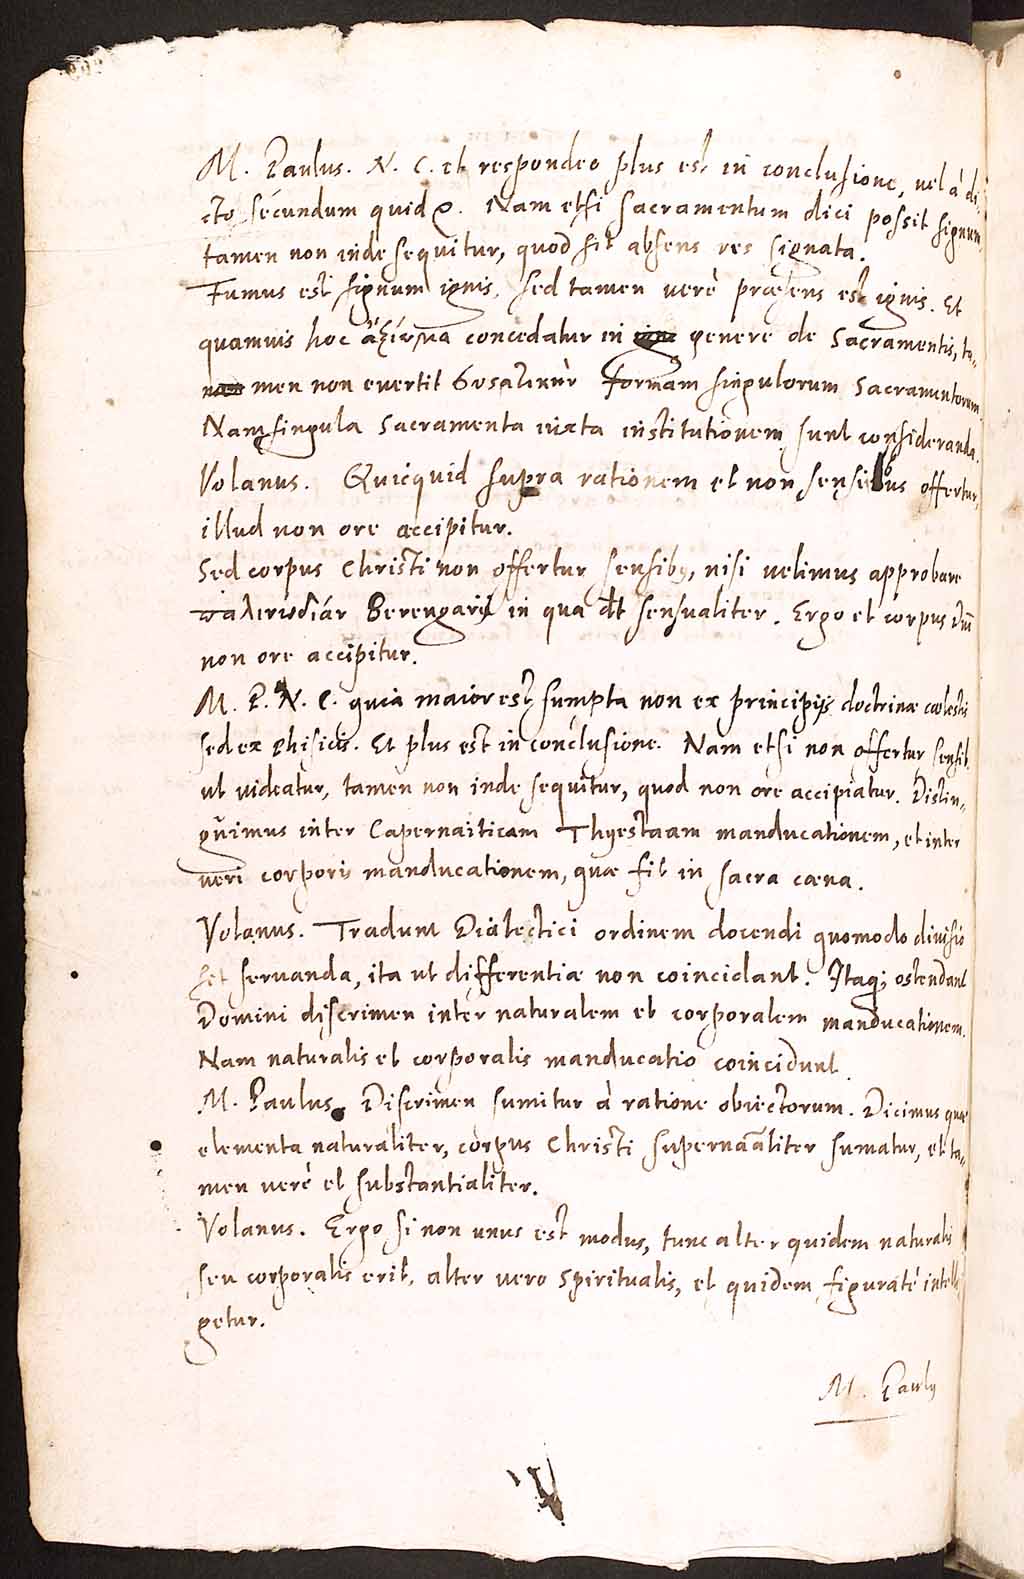 M. Paulus. N. C. et respondeo plus est in conclusione, uel à di-
cto secundum quid. Nam etsi sacramentum dici possit signum,
tamen non inde sequitur, quod sit absens res signata.
Fumus est signum ignis, sed tamen verè præsens est ignis. Et
quamuis hoc ἀξίωμα concedatur in genere de Sacramentis, ta-
men non evertit formam singulorum Sacramentorum.
Nam singula Sacramenta iuxta institutionem sunt consideranda.
Volanus. Quicquid supra rationem et non sensibus offertur,
illud non ore accipitur.
Sed corpus Christi non offertur sensibꝰ, nisi velimus approbare
παλινωδίαν Berengarij in qua dt sensualiter. Ergo et corpus Dnī
non ore accipitur.
M. P. N. C. quia maior est sumpta non ex principijs doctrinæ cœlestis
sed ex phisicis. Et plus est in conclusione. Nam etsi non offertur sensib.
ut videatur, tamen non inde sequitur, quod non ore accipiatur. Distin-
guimus inter Capernaiticam Thyestæam manducationem, et inter
veri corporis manducationem, quæ fit in sacra cæna.
Volanus. Tradunt Dialectici ordinem docendi quomodo divisio
sit seruanda, ita ut differentiæ non coincidant. Itaq; ostendant
Domini discrimen inter naturalem et corporalem manducationem.
Nam naturalis et corporalis manducatio coincidunt.
M. Paulus. Discrimen sumitur à ratione obiectorum. Dicimus quæ
elementa naturaliter, corpus Christi supernāaliter sumatur, et ta-
men verè et substantialiter.
Volanus. Ergo si non unus est modus, tunc alter quidem naturalis
seu corporalis erit, alter vero spiritualis, et quidem figuratè intelli
getur.
M. Paulꝰ